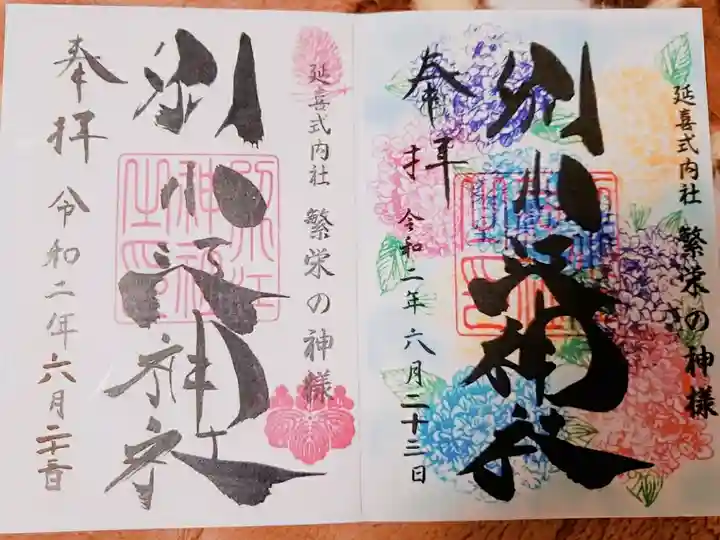 延喜式内社 繁栄の神様
別小江神社
奉拝 令和二年六月二十三日
延喜式内社 繁栄の神様
別小江神社
別小江神社之印
奉拝 令和二年六月二十三日